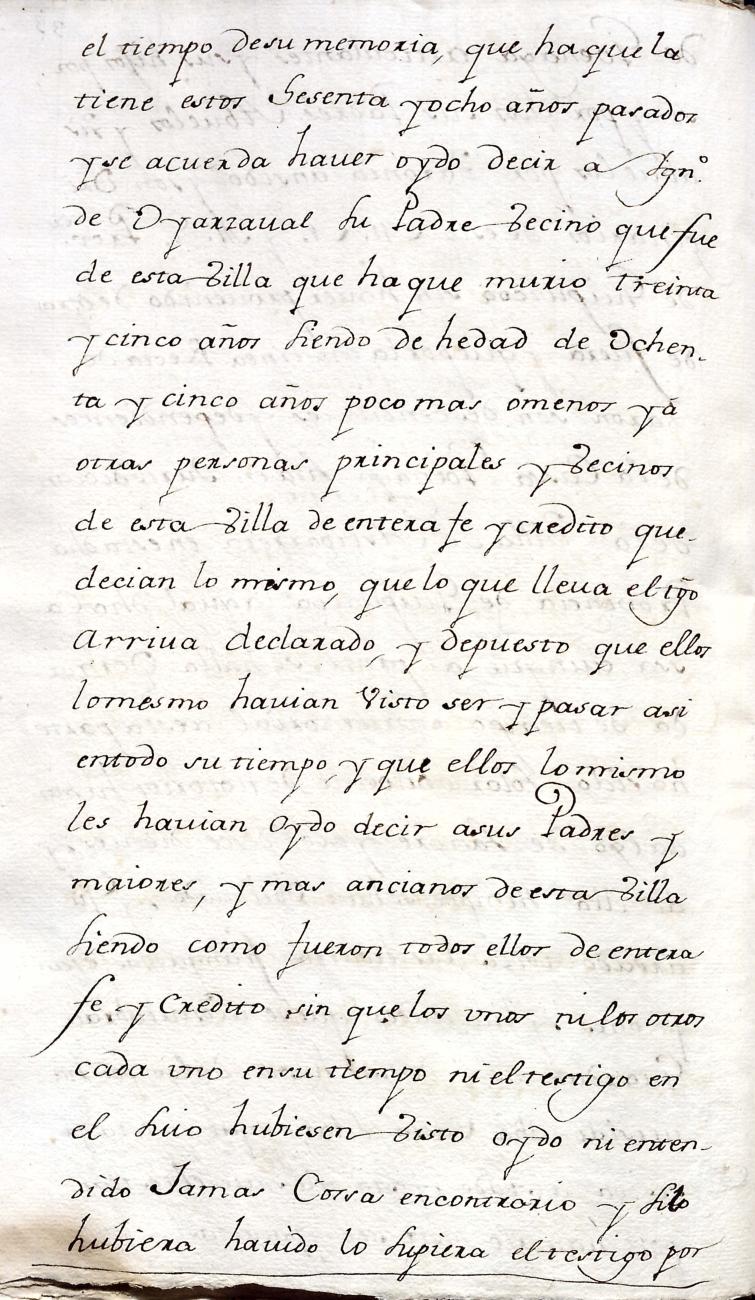 el tiempo desu memoria, que ha que la
tiene estos Sesenta y ocho años pasados
y se acuerda haver oydo decir a Ygn.º
de Oyarzaval su Padre Vecino que fue
de esta Villa que ha que murio treinta
y cinco años siendo de hedad de Ochen-
ta y cinco años poco mas omenos y à
otras personas principales y Vecinos
de esta Villa de entera fe y credito que-
decian lo mismo, que lo que lleva el tgo
arriva declarado, y depuesto que ellos
lomesmo havian Visto ser y pasar asi
entodo su tiempo, y que ellos lo mismo
les havian oydo decir asus Padres y
maiores, y mas ancianos de esta Villa
siendo como fueron todos ellos de entera
fe y Credito sin que los vnos ni los otros
cada vno ensu tiempo ni el testigo en
el suio hubiesen Visto oydo ni enten-
dido Jamas Cossa encontrario y silo
hubiera havido lo supiera el testigo por